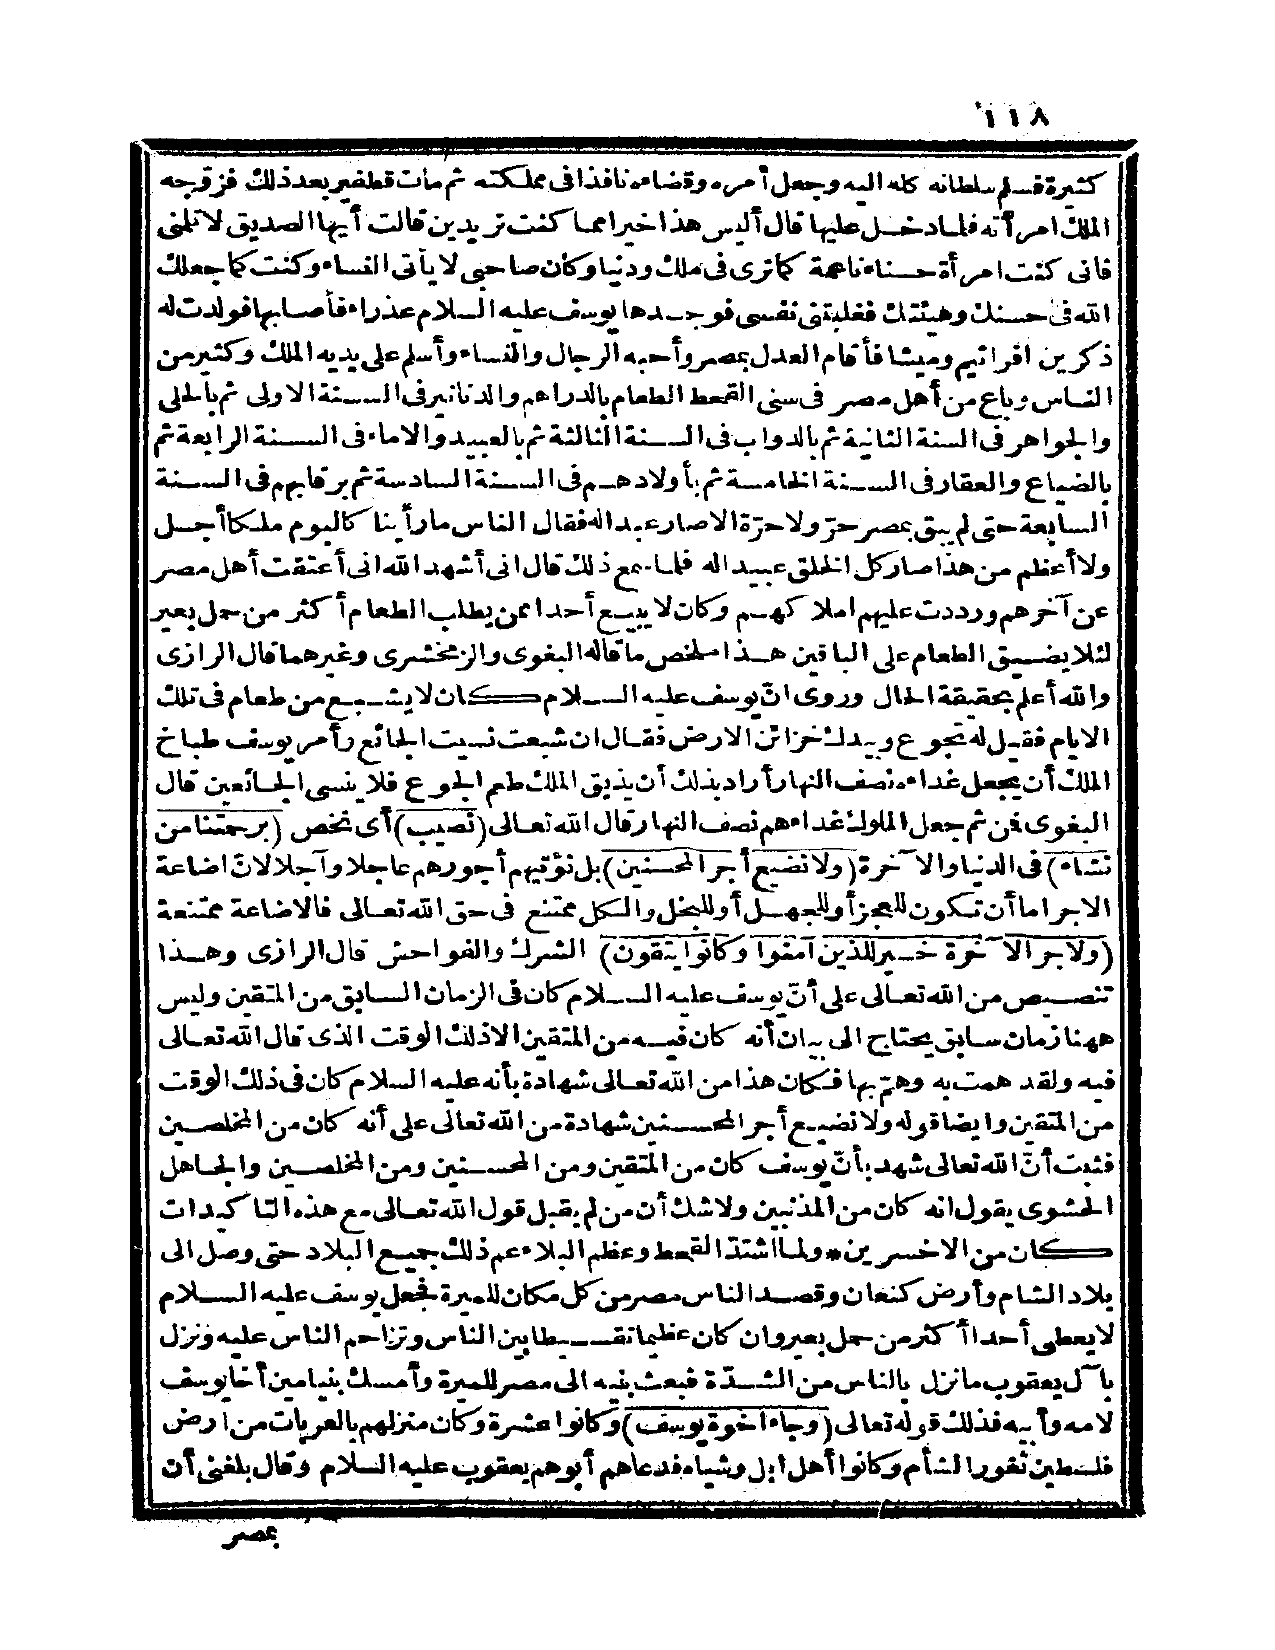 ١١٨
كثيرة فسلم سلطانه كله اليه وجعل أمره وقضاءه نافذا فى مملكته ثم مات قطفير بعد ذلك فزوّجه
الملك امرأته فلما دخل عليها قال أليس هذا خيرا مما كنت تريدين قالت أيها الصديق لا تلمنى
فانى كنت امرأة حسناء ناعمة كما ترى فى ملك ودنيا وكان صاحبى لا يأتى النساء وكنت كما جعلك
الله فى حسنك وهيئتك فغلبتنى نفسى فوجدها يوسف عليه السلام عذراء فأصابها فولدت له
ذكرين افراثيم وميشا فأقام العدل بمصر وأحبه الرجال والنساء وأسلم على يديه الملك وكثير من
الناس وباع من أهل مصر فى سنى القحط الطعام بالدراهم والدنانير فى السنة الاولى ثم بالحلى
والجواهر فى السنة الثانية ثم بالدواب فى السنة الثالثة ثم بالعبيد والاماء فى السنة الرابعة ثم
بالضياع والعقار فى السنة الخامسة ثم بأولادهم فى السنة السادسة ثم برقابهم فى السنة
السابعة حتى لم يبق بمصر حرّ ولا حرّة الا صار عبدا له فقال الناس ما رأينا كاليوم ملكا أجل
ولا أعظم من هذا صار كل الخلق عبيدا له فلما سمع ذلك قال انى أشهد الله انى أعتقت أهل مصر
عن آخرهم ورددت عليهم املاكهم وكان لا يبيع أحدا ممن يطلب الطعام أكثر من حمل بعير
لئلا يضيق الطعام على الباقين هذا ملخص ما قاله البغوى والزمخشرى وغيرهما قال الرازى
والله أعلم بحقيقة الحال وروى انّ يوسف عليه السلام كان لا يشبع من طعام فى تلك
الايام فقيل له تجوع وبيدك خزائن الارض فقال ان شبعت نسيت الجائع وأمر يوسف طباخ
الملك أن يجعل غداءه نصف النهار أراد بذلك أن يذيق الملك طعم الجوع فلا ينسى الجائعين قال
البغوى فمن ثم جعل الملوك غداءهم نصف النهار قال الله تعالى (نصيب) أى نخص (برحمتنا من
نشاء) فى الدنيا والآخرة (ولا نضيع أجر المحسنين) بل نؤتيهم أجورهم عاجلا وآجلا لانّ اضاعة
الاجر اما أن تكون للعجز أو للجهل أو للبخل والكل ممتنع فى حق الله تعالى فالاضاعة ممتنعة
(ولاجر الآخرة خير للذين آمنوا وكانوا يتقون) الشرك والفواحش قال الرازى وهذا
تنصيص من الله تعالى على أنّ يوسف عليه السلام كان فى الزمان السابق من المتقين وليس
ههنا زمان سابق يحتاج الى بيان أنه كان فيه من المتقين الا ذلك الوقت الذى قال الله تعالى
فيه ولقد همت به وهمّ بها فكان هذا من الله تعالى شهادة بأنه عليه السلام كان فى ذلك الوقت
من المتقين وايضا قوله ولا نضيع أجر المحسنين شهادة من الله تعالى على أنه كان من المخلصين
فثبت أنّ الله تعالى شهد بأنّ يوسف كان من المتقين ومن المحسنين ومن المخلصين والجاهل
الحشوى يقول انه كان من المذنبين ولا شك أن من لم يقبل قول الله تعالى مع هذه التاكيدات
كان من الاخسرين * ولما اشتدّ القحط وعظم البلاء عم ذلك جميع البلاد حتى وصل الى
بلاد الشام وأرض كنعان وقصد الناس مصر من كل مكان للميرة فجعل يوسف عليه السلام
لا يعطى أحدا أكثر من حمل بعير وان كان عظيما تقسيطا بين الناس وتزاحم الناس عليه ونزل
بآل يعقوب ما نزل بالناس من الشدّة فبعث بنيه الى مصر للميرة وأمسك بنيامين أخا يوسف
لامه وأبيه فذلك قوله تعالى (وجاء اخوة يوسف) وكانوا عشرة وكان منزلهم بالعربات من ارض
فلسطين ثغور الشأم وكانوا أهل ابل وشياه فدعاهم أبوهم يعقوب عليه السلام وقال بلغنى أن
بمصر